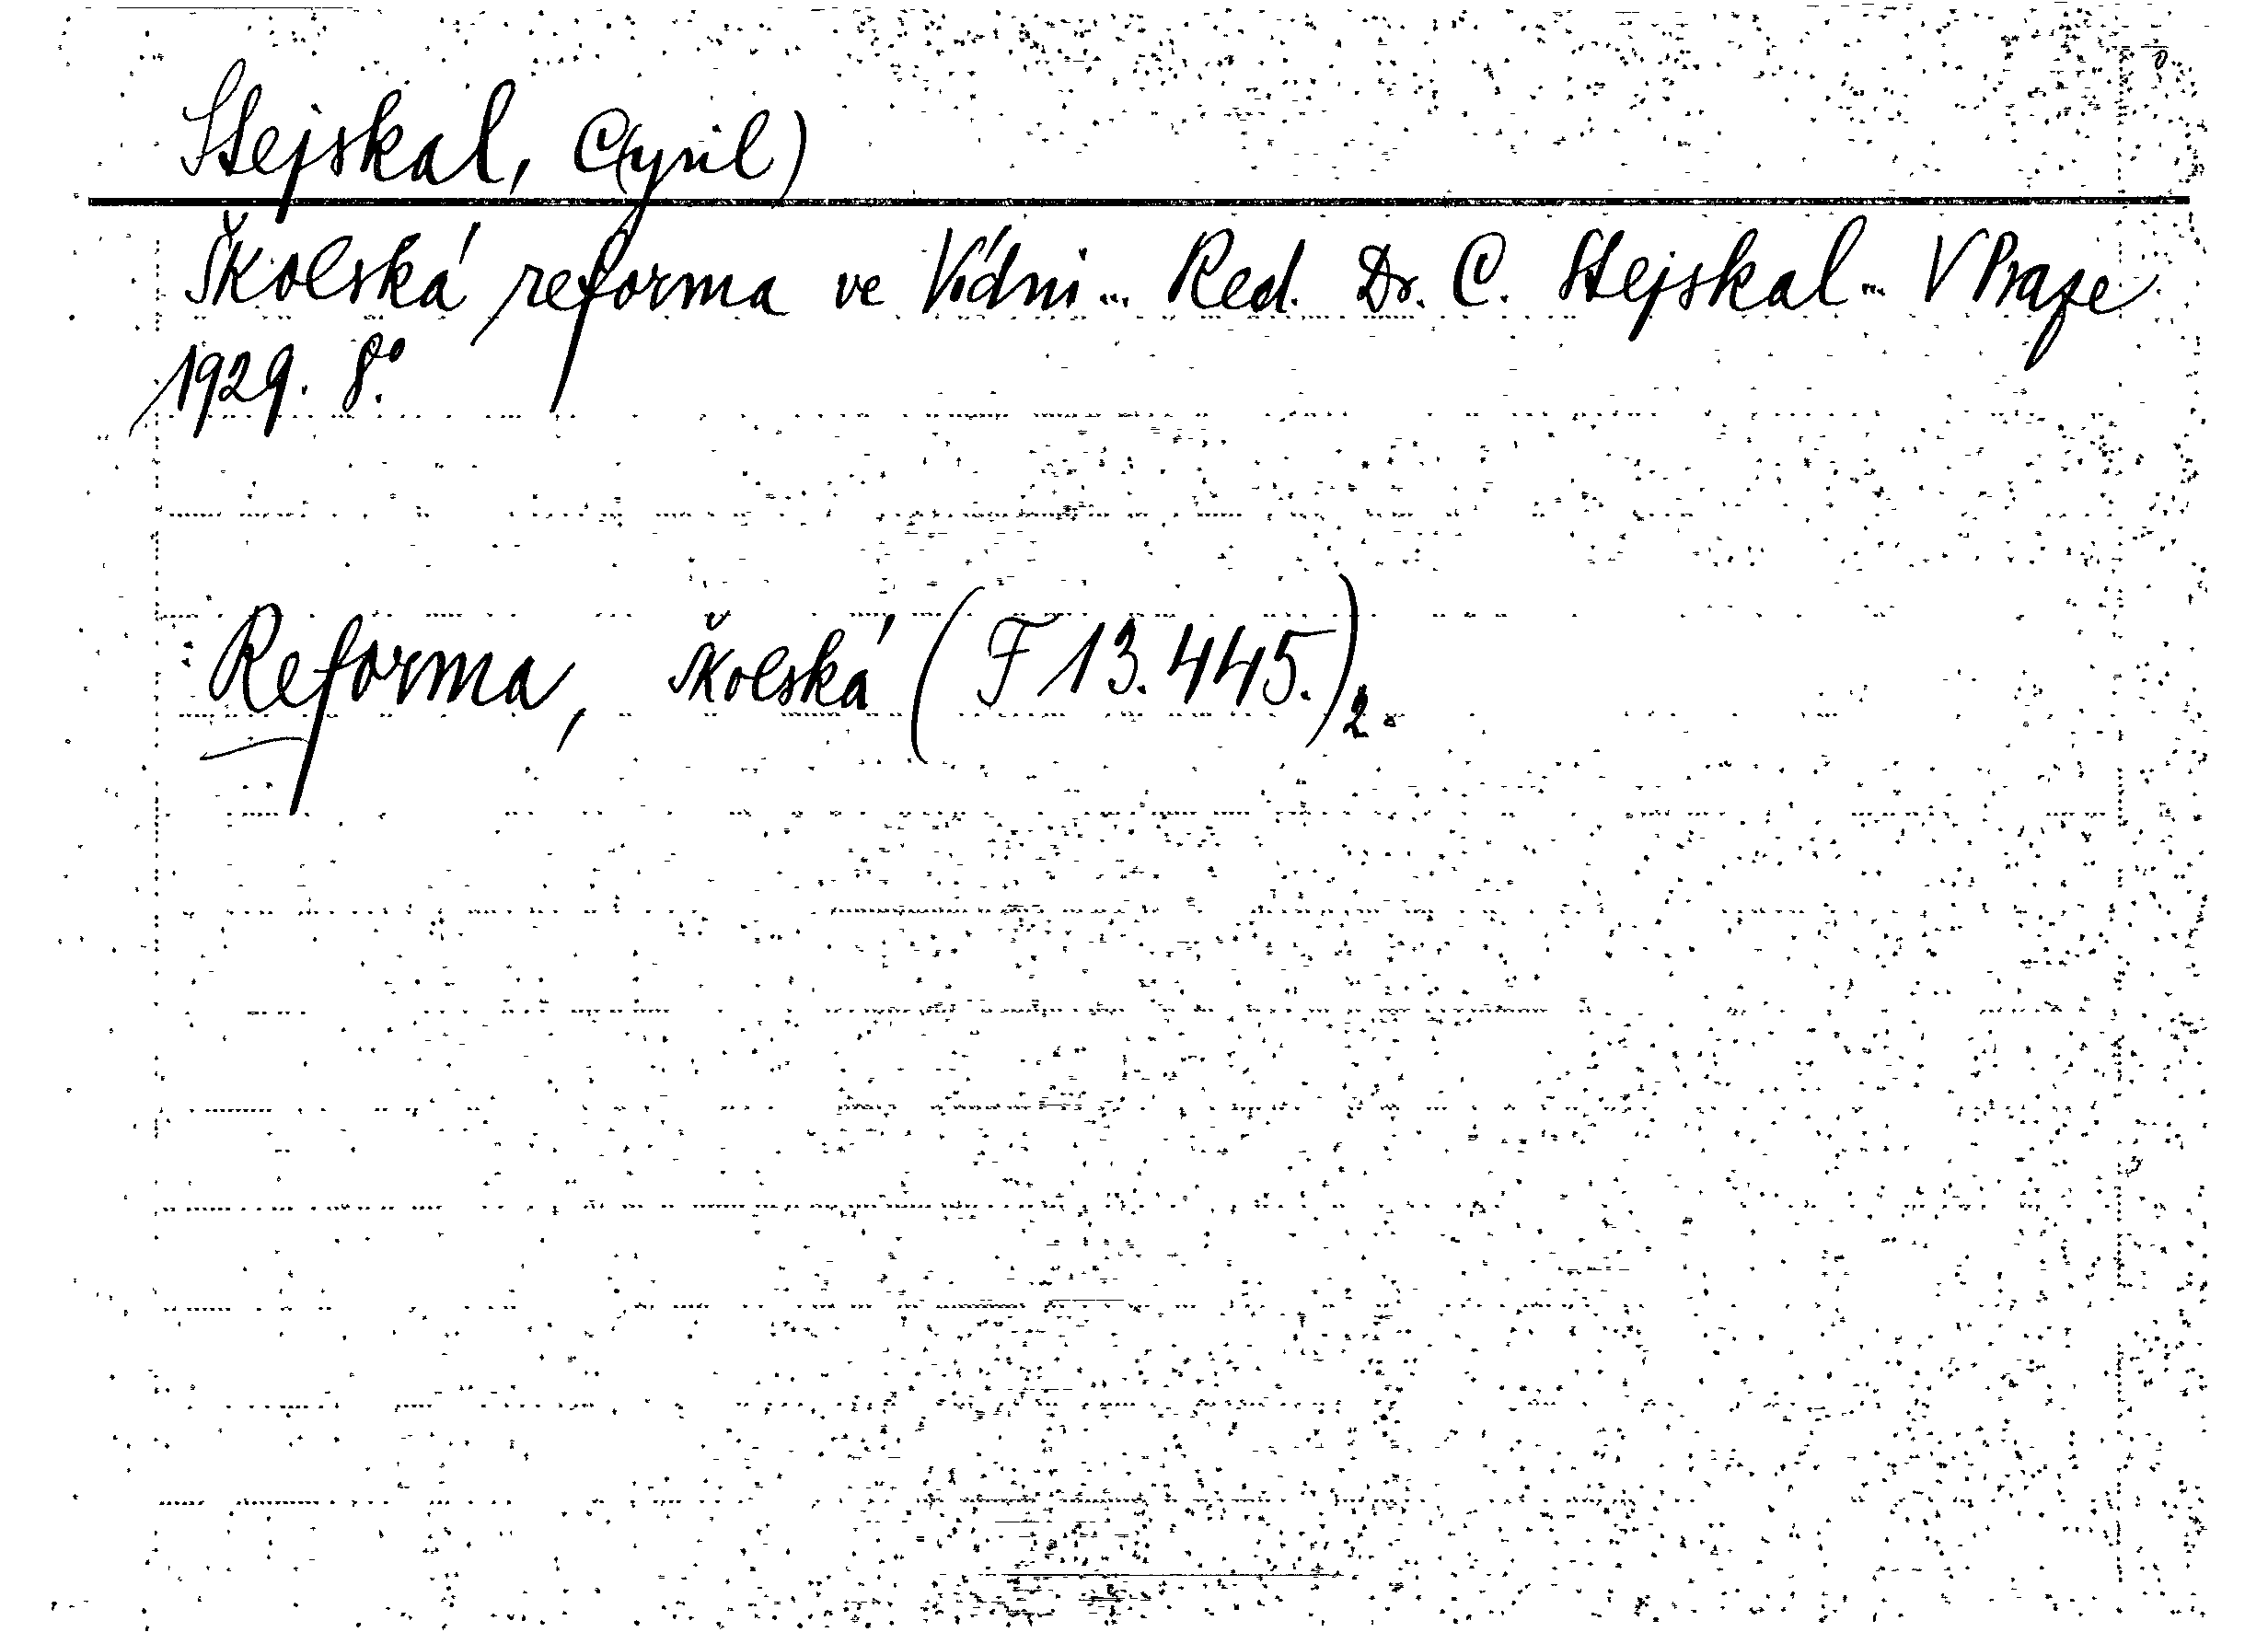 Stejskal, C(yril)
Školská reforma ve Vídni... Red. Dr. C. Stejskal... V Praze
1929. 8°.
Reforma, školská (F 13.445.)2.